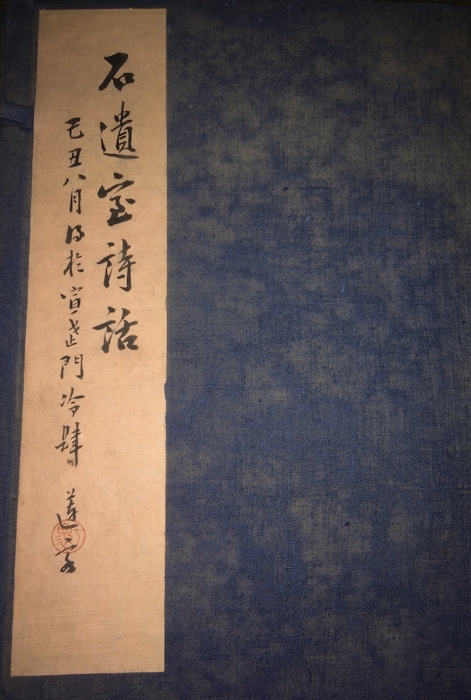 石遺室詩話
己丑八月得於宣武門冷肆